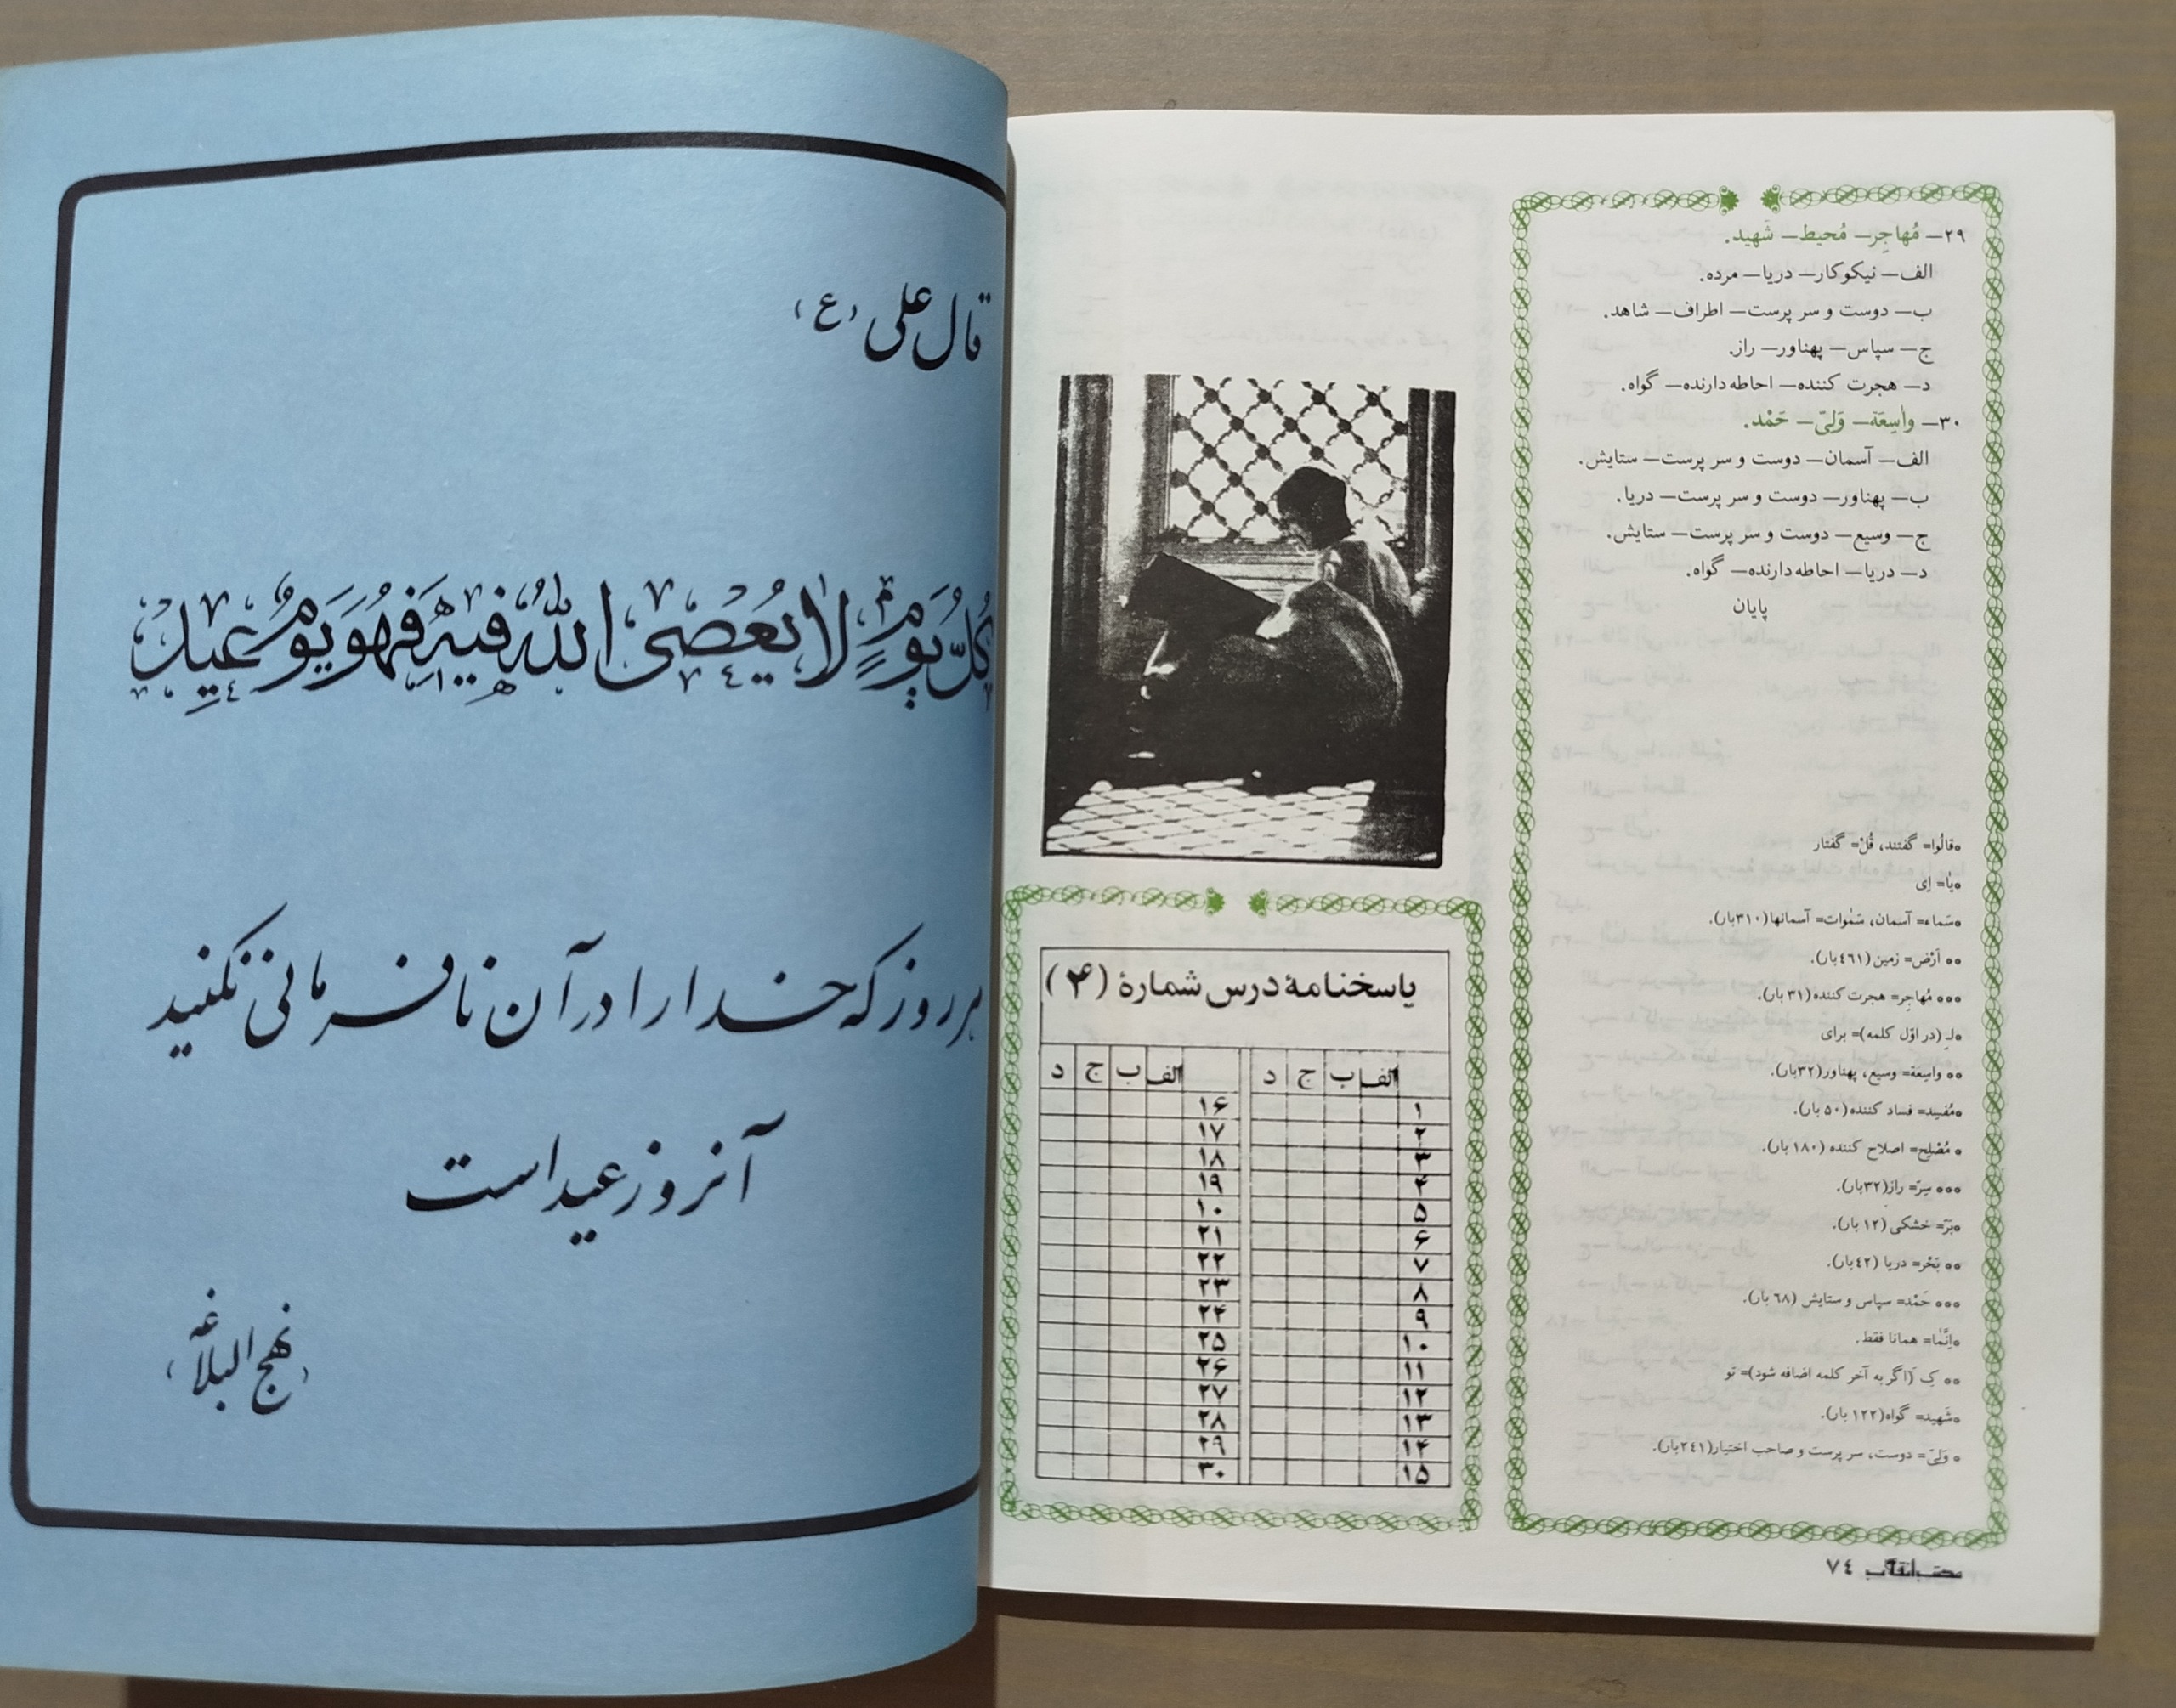 ۲۹– مُهاجِر– مُحیط– شَهید.
الف– نیکوکار– دریا– مرده.
ب– دوست و سر پرست– اطراف– شاهد.
ج– سپاس– پهناور– راز.
د– هجرت کننده– احاطه دارنده– گواه.
۳۰– واسِعَة– وَلیّ– حَمْد.
الف– آسمان– دوست و سر پرست– ستایش.
ب– پهناور– دوست و سر پرست– دریا.
ج– وسیع– دوست و سر پرست– ستایش.
د– دریا– احاطه دارنده– گواه.
پایان
*قالُوا= گفتند، قُلْ= گفتار
*یٰا= اِی
*سَماء= آسمان، سَمٰوات= آسمانها(۳۱۰بار).
** اَرْض= زمین(۴۶۱بار).
*** مُهاجِر= هجرت کننده(۳۱ بار).
*لِـ (در اوّل کلمه)= برای
** واسِعَة= وسیع، پهناور(۳۲بار).
*مُفسِد= فساد کننده(۵۰ بار).
* مُصْلِح= اصلاح کننده (۱۸۰ بار).
*** سِرّ= راز(۳۲بار).
*بَرّ= خشکی (۱۲ بار).
** بَحْر= دریا (۴۲بار).
*** حَمْد= سپاس و ستایش (۶۸ بار).
*اِنَّمٰا= همانا فقط.
** کَ (اگر به آخر کلمه اضافه شود)= تو
*شَهید= گواه(۱۲۲ بار).
* وَلیّ= دوست، سر پرست و صاحب اختیار(۲۴۱بار).
مکتب انقلاب ۷۴
پاسخنامهٔ درس شمارهٔ (۴)
الف ب ج د الف ب ج د
۱ ۱۶
۲ ۱۷
۳ ۱۸
۴ ۱۹
۵ ۱۰
۶ ۲۱
۷ ۲۲
۸ ۲۳
۹ ۲۴
۱۰ ۲۵
۱۱ ۲۶
۱۲ ۲۷
۱۳ ۲۸
۱۴ ۲۹
۱۵ ۳۰
قال علی (ع)
كُلُّ يَوْمٍ لا يُعْصَى اللهُ فيهِ فَهُوَ يَوْمُ عيدٍ
هر روز که خدا را در آن نافرمانی نکنید
آنروز عید است
(نهج البلاغه)